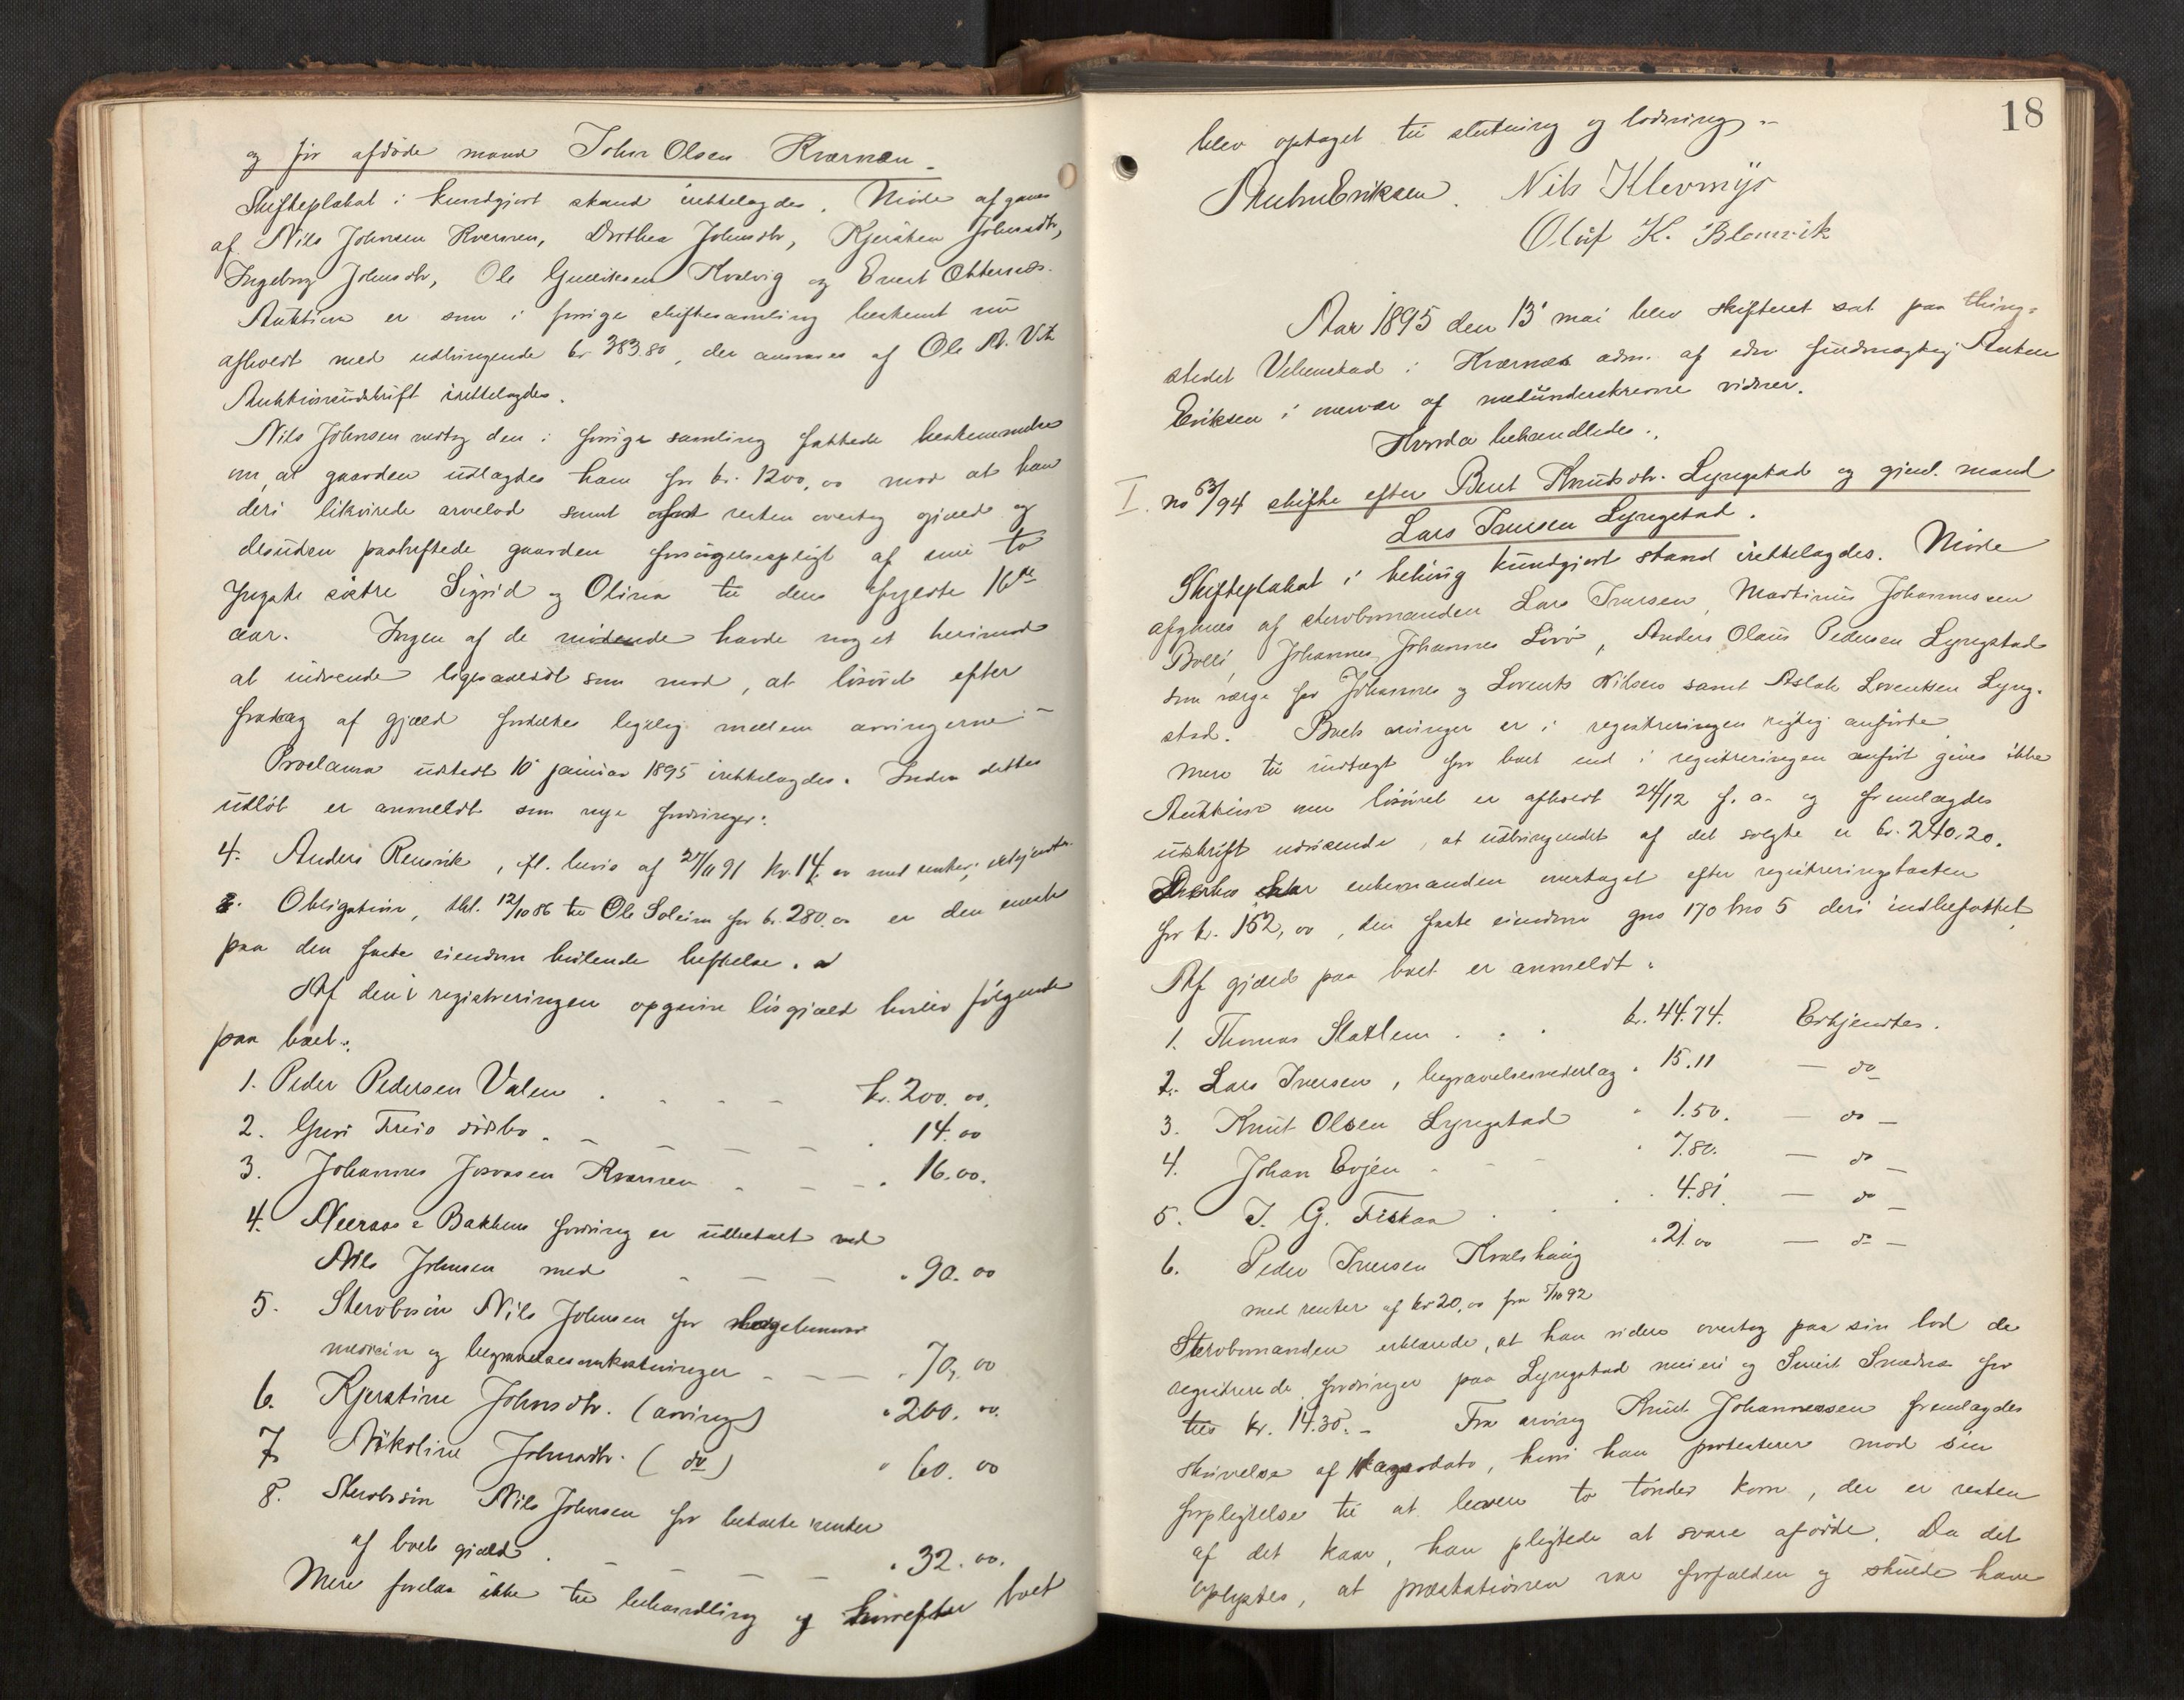 og for afdøde mand John Olsen Kvernen.
Skifteplakat i kundgjort stand irettelagdes. Møde afgaves
af Nils Johnsen Kvernen, Dorthea Johnsdtr, Kjersten Johnsdtr,
Ingeborg Johnsdtr, Ole Gulliksen Kvalvig og Evert Otternes.
Auktion er som i forrige skiftesamling bestemt nu
afholdt med udbringende kr 383.80, der ansvares af Ole A. Vik
Auktionsudskrift irettelagdes.
Nils Johnsen vedtog den i forrige samling fattede bestemmelse
om, at gaarden udlagdes ham for kr. 1200,00 mod at han
deri likvirede arvelod samt resten overtog gjæld og
desuden paaheftede gaarden forsørgelsespligt af sine to
yngste søstre Sigrid og Olina til deres fyldte 16de
aar. Ingen af de mødende havde noget herimod
at indvende ligesaalidt som mod, at løsøret efter
fradrag af gjæld fordeltes legalig mellem arvingerne.
Proclama udstedt 10 januar 1895 irettelagdes. Inden dettes
udløb er anmeldt som nye fordringer:
4. Anders Rensvik, fl. bevis af 27/11 91 kr. 14.00 med renter; erkjendtes.
Obligation, thl. 12/10 86 til Ole Soleim for kr. 280.00 er den eneste
paa den faste eiendom hvilende heftelse.
Af den i registreringen opgivne løsgjæld hviler følgende
paa boet:
1. Peder Pedersen Valen . . - - kr. 200.00.
2. Guri Freis dødsbo . - - - - . 14.00
3. Johannes Kvernen - - - . 16.00.
4. Bakkens fordring er udbetalt ved
Nils Johnsen med - - - . 90.00
5. Stervbosøn Nils Johnsen for
medicin og begravelsesomkostninger - - - . 70,00
6. Kjerstine Johnsdtr. (arving) " 200.00.
7. Nikoline Johnsdtr. ( do ) " 60.00
8. Stervbosøn Nils Johnsen for betalte renter
af boets gjæld . - - - - . 32.00.
Mere forelaa ikke til behandling og hvorefter boet
18
blev optaget til slutning og lodning.
Anton Eriksen. Nils Klevmyr
Oluf K. Blomvik
Aar 1895 den 13 mai blev skifteret sat paa thing-
stedet Vebenstad i Kvernes adm. af edsv fuldmægtig Anton
Eriksen i nærvær af medunderskrevne vidner.
Hvorda behandledes.,
I. no 63/94 skifte efter Beret Knudsdtr. Lyngstad og gjenl. mand
Lars Iversen Lyngstad.
Skifteplakat i behørig kundgjort stand irettelagdes. Møde
afgaves af stervbomanden Lars Iversen, Martinus Johannessen
Bolli, Johannes Johannes Lovø, Anders Olaus Pedersen Lyngstad
som værge for Johannes og Lorents Nilsen samt Aslak Lorentsen Lyng-
stad. Boets arvinger er i registreringen rigtig anførte.
Mere til indtægt for boet end i registreringen anført gives ikke
Auktion over løsøret er afholdt 24/12 f. a. og fremlagdes
udskrift udvisende, at udbringendet af det solgte er kr. 240.20.
Desuden har enkemanden overtaget efter registreringstaxten
for kr. 152,00, den faste eiendom gno 170 bno 5 deri indbefattet.
Af gjæld paa boet er anmeldt:
1. Thomas Statlem . . . kr. 44.74. Erkjendtes.
2. Lars Iversen, begravelsesvederlag . 15.11 — do
3. Knut Olsen Lyngstad " 1.50. — do —
4. Johan Evjen - - - . 7.80. — do —
5. J. G. Fiskaa . . . 4.81. — do —
6. Peder Iversen Kvalshaug . 21.00 — do —
med renter af kr 20.00 fra 5/10 92
Stervbomanden erklærede, at han videre overtog paa sin lod de
registrerede fordringer paa Lyngstad meieri og Sivert for
tils kr. 14.30. - Fra arving Knut Johannessen fremlagdes
skrivelse af dagsdato, hvori han protesterer mod sin
forpligtelse til at levere to tønder korn, der er resten
af det kaar, han pligtede at svare afdøde. Da det
oplystes, at præstationen var forfalden og skulde have